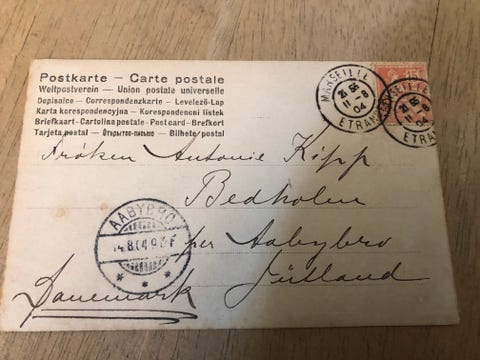 Postkarte – Carte postale
Weltpostverein – Union postale universelle
Dopisnice – Correspondenzkarte – Levelező-Lap
Karta korespondencyjna – Korespondenční lístek
Briefkaart - Cartolina postale - Postcard - Brefkort
Tarjeta postal – Открытое письмо – Bilhete postal
MARSEILLE
21 55
11 - 8
04
ETRANGER
MARSEILLE
21 55
11 - 8
04
ETRANGER
15
Frøken Antonie Kipp
Bedholm
per Aabybro
Jütland
Danemark
AABYBRO
14.8.04